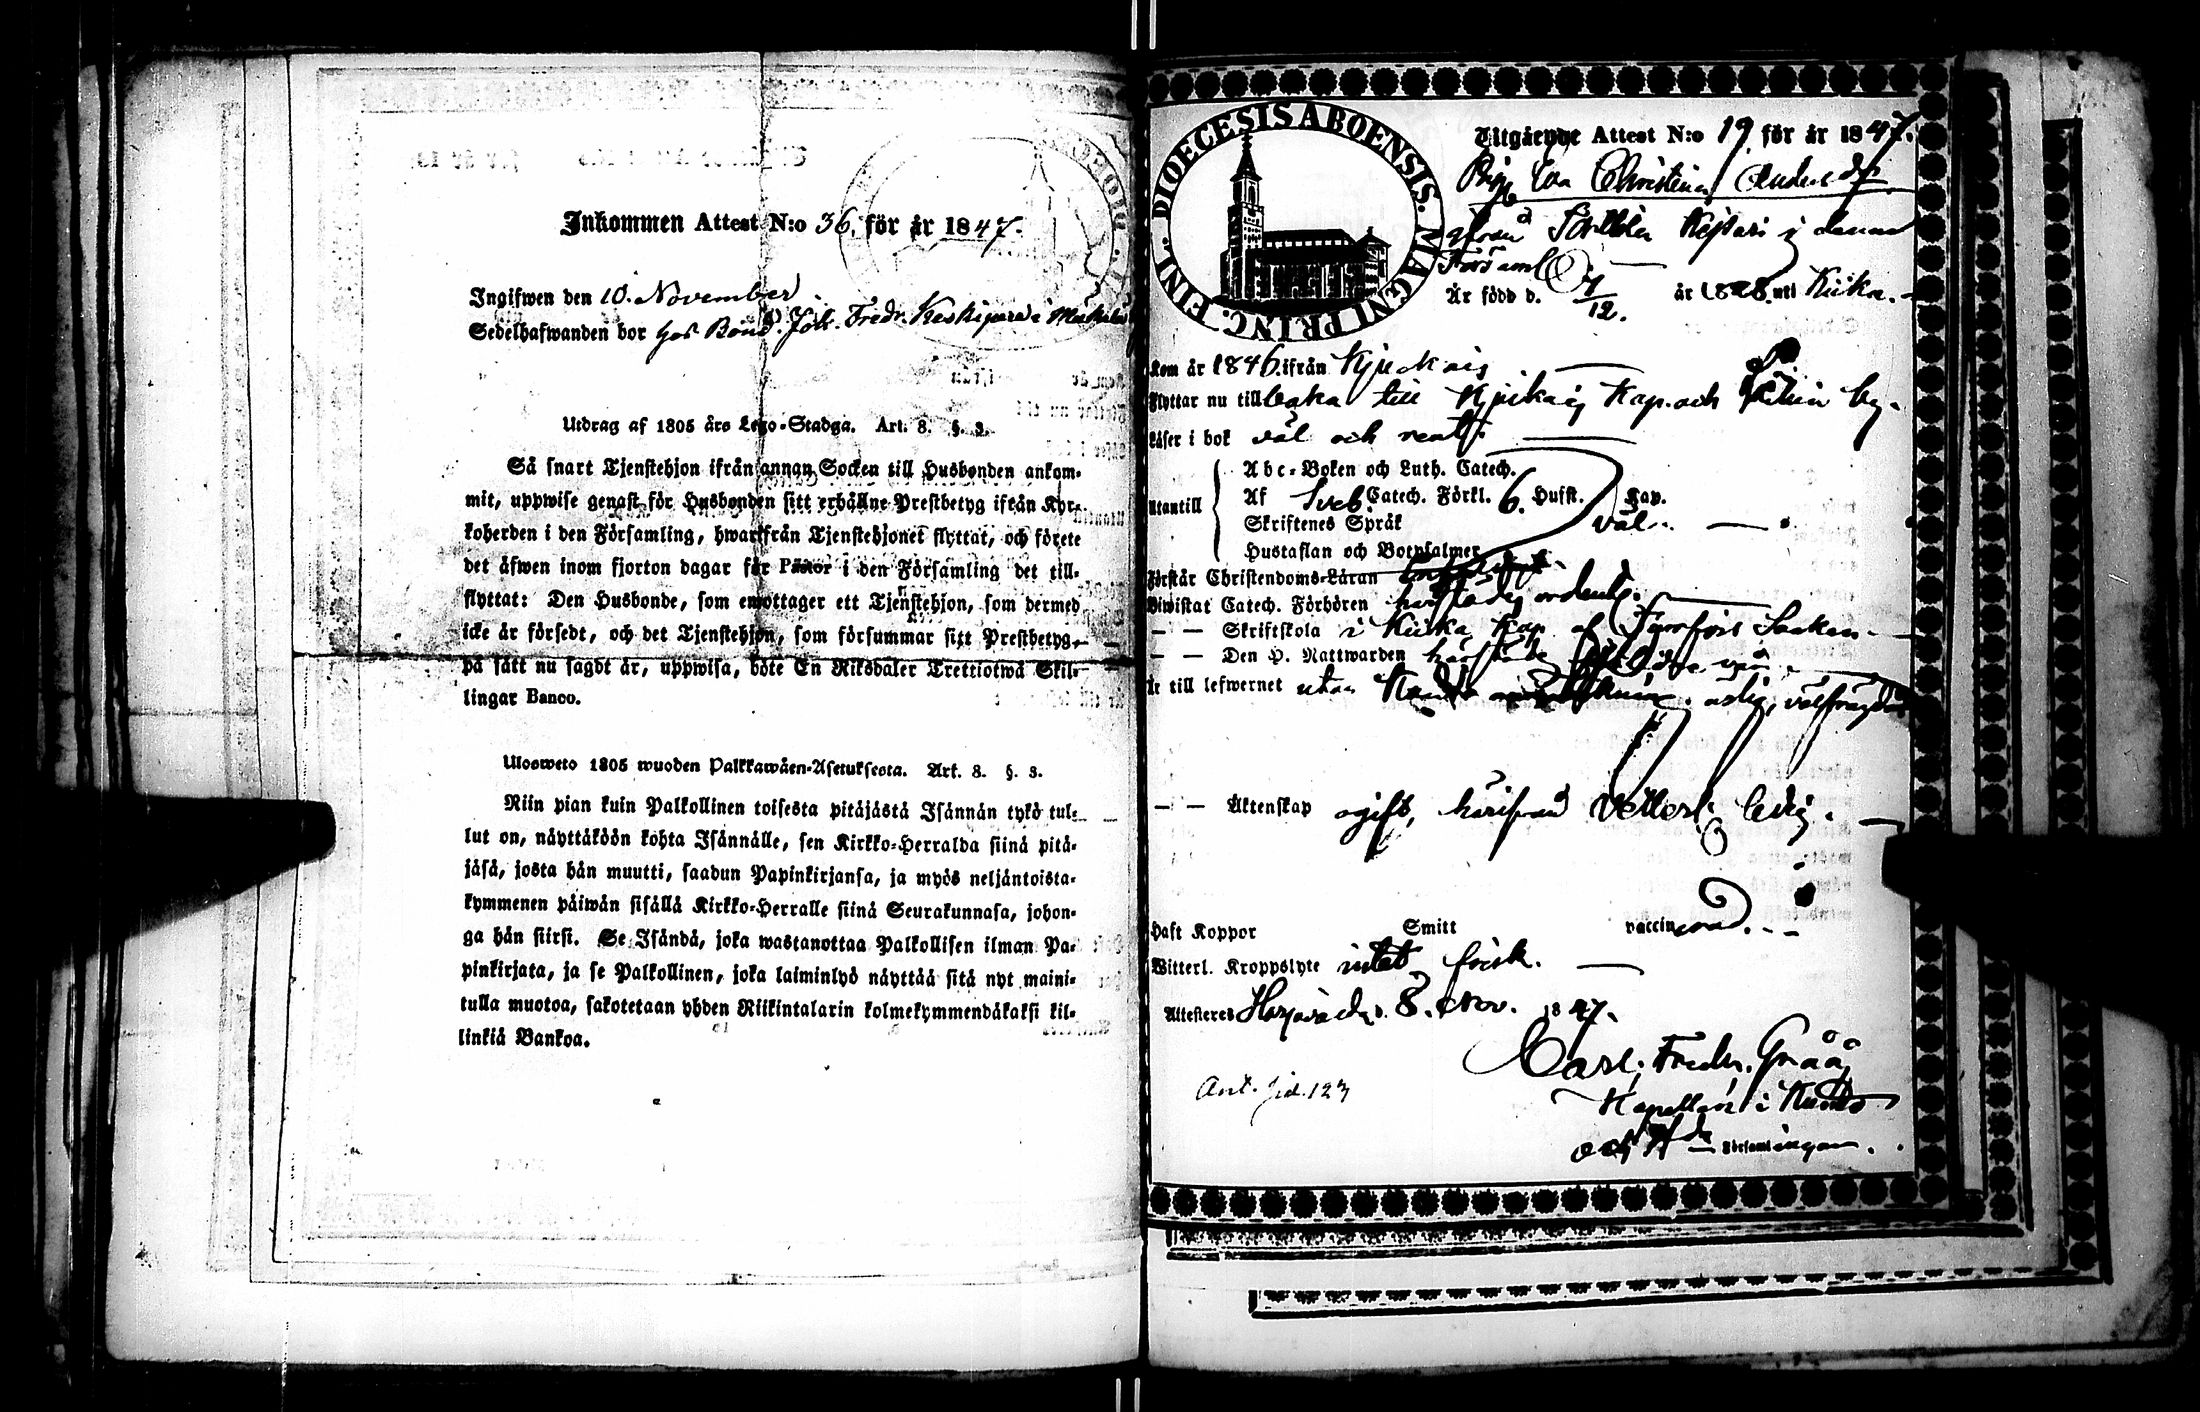 Inkommen Attest N:o 36. för år 1847.
Ingifwen den 10. November
Sedelhafwanden bor hos Bond. Joh. Fredr. Keskipere i
Utdrag af 1805 års Lego-Stadga. Art. 8. §. 3.
Så snart Tjenstehjon ifrån annan Socken till Husbonden ankom-
mit, uppwise genast för Husbonden sitt erhållne Prestbetyg ifrån Kyr-
koherden i den Församling, hwarifrån Tjenstehjonet flyttat, och förete
det äfwen inom fjorton dagar för Pastor i den Församling det till-
flyttat: Den Husbonde, som emottager ett Tjenstehjon, som dermed
icke är försedt, och det Tjenstehjon, som försummar sitt Prestbetyg,
på sätt nu sagdt är, uppwisa, böte En Riksdaler Trettiotwå Skil-
lingar Banco.
Ulosweto 1805 wuoden Palkkawäen-Asetuksesta. Art. 8. §. 3.
Niin pian kuin Palkollinen toisesta pitäjästä Isännän tykö tul-
lut on, näyttäköön kohta Isännälle, sen Kirkko-Herralda siinä pitä-
jäsä, josta hän muutti, saadun Papinkirjansa, ja myös neljäntoista-
kymmenen päiwän sisällä Kirkko-Herralle siinä Seurakunnasa, johon-
ga hän siirsi. Se Isändä, joka wastanottaa Palkollisen ilman Pa-
pinkirjata, ja se Palkollinen, joka laiminlyö näyttää sitä nyt maini-
tulla muotoa, sakotetaan yhden Riikintalarin kolmekymmendäkaksi kil-
linkiä Bankoa.
DIOECESIS ABOENSIS. MAGNI PRINC. FINL.
Utgående Attest N:o 19. för år 1847.
Pig. Eva Christina Anders d:r
ifrån Torttila i denna
Församl.
Är född d. 7/12. år 1828. uti Kiika.
Kom år 1846. ifrån
Flyttar nu tillbaka till Kap. och by.
Läser i bok väl och rent.
Abc-Boken och Luth. Catech.
Utantill Af Sveb. Catech. Förkl. 6. Hufst. Kap.
Skriftenes Språk väl.
Hustaflan och Botpsalmer
Förstår Christendoms-Läran
Biwistat Catech. Förhören härstädes ordentl.
— — Skriftskola i Kiika Kap. af
— — Den H. Nattwarden härstädes
Är till lefwernet utan ärlig, välfrägdad
— — Äktenskap ogift, härifrån veterl. ledig.
Haft Koppor Smitt vaccinerad.
Witterl. Kroppslyte intet, frisk.
Attesteres Harjavalda d. 8. Nov. 1847.
Carl Fredr. Gråå
Kapellan i
och H:da Församlingar.
Ant. sid. 123